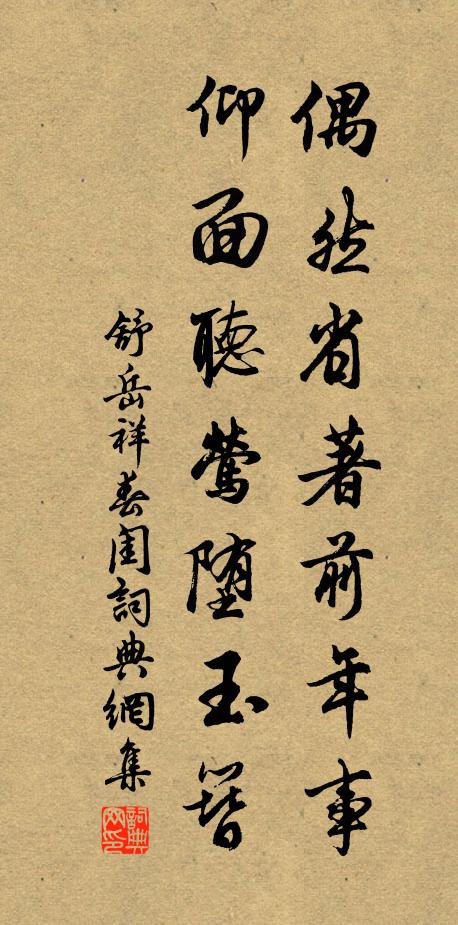 偶然省著前年事
仰面聽鶯堕玉簪
舒岳祥春閨詞典網集
詞典网印